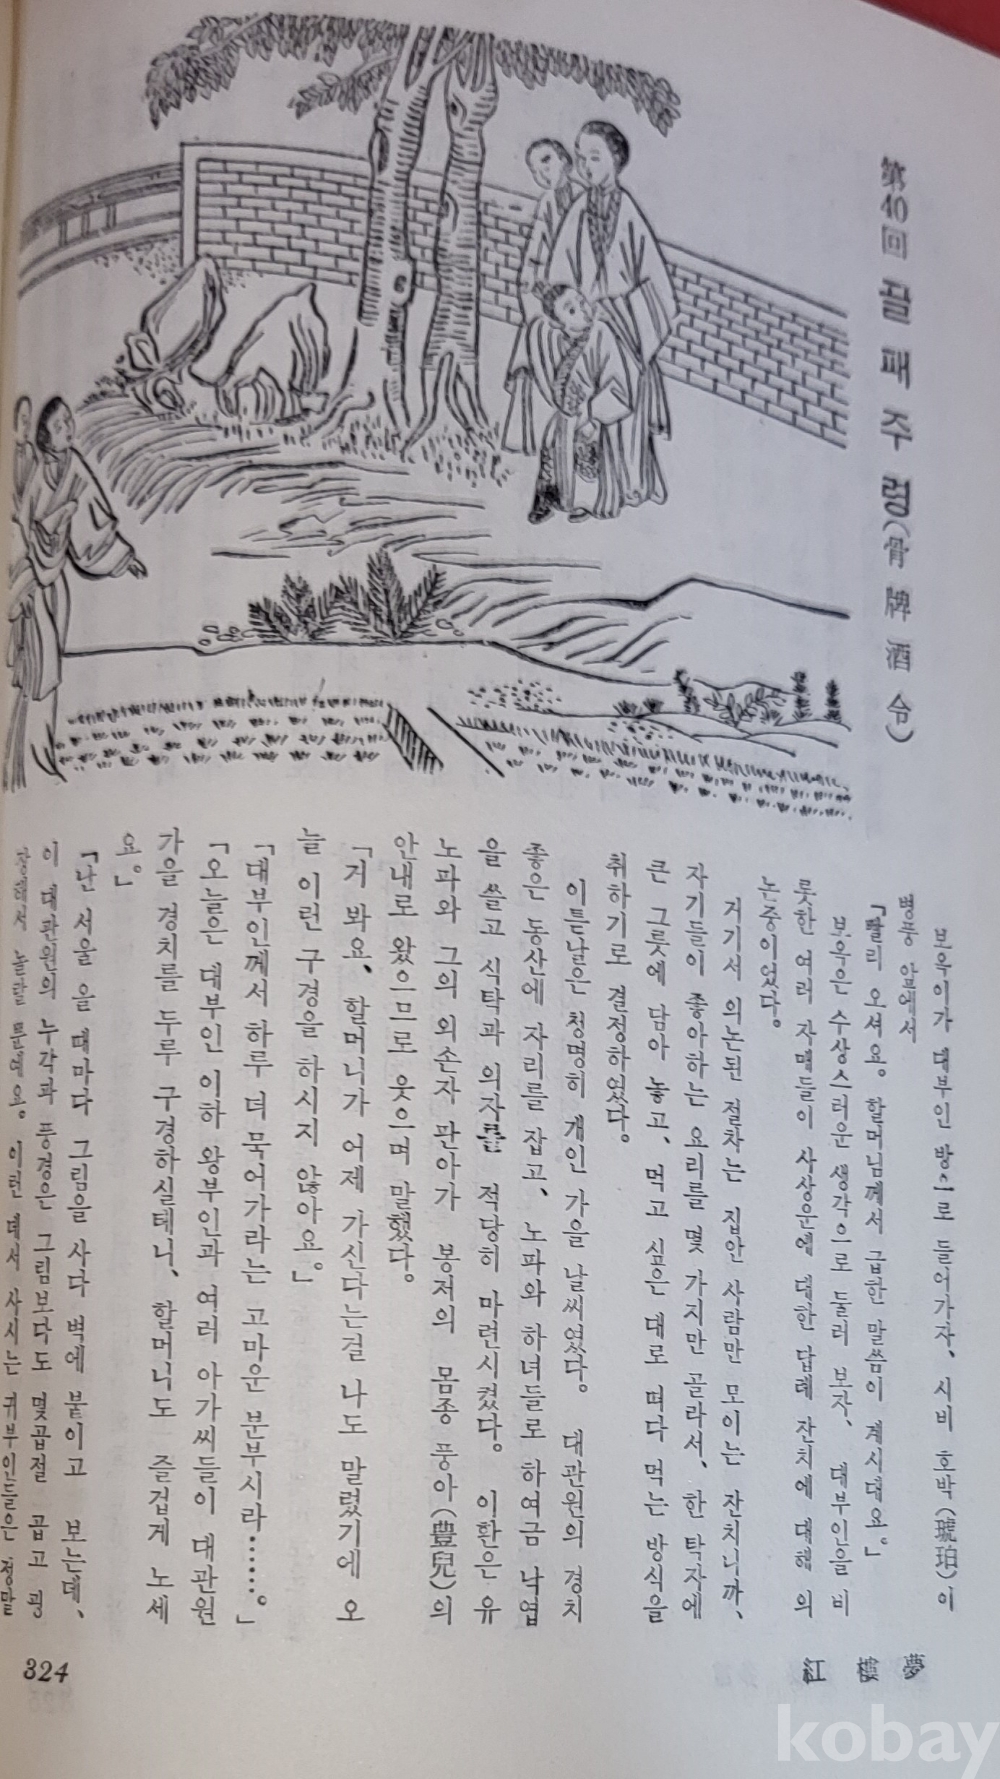 第40回 골패주령(骨牌酒令)
보옥이가 대부인 방으로 들어가자、시비 호박(琥珀)이
병풍 앞에서
「빨리 오셔요。할머님께서 급한 말씀이 계시대요。」
보옥은 수상스러운 생각으로 둘러 보자、 대부인을 비
롯한 여러 자매들이 사상운에 대한 답례 잔치에 대해 의
논중이었다。
거기서 의논된 절차는 집안 사람만 모이는 잔치니까、
자기들이 좋아하는 요리를 몇 가지만 골라서、한 탁자에
큰 그릇에 담아 놓고、먹고 싶은 대로 떠다 먹는 방식을
취하기로 결정하였다。
이튿날은 청명히 개인 가을 날씨였다。 대관원의 경치
좋은 동산에 자리를 잡고、노파와 하녀들로 하여금 낙엽
을 쓸고 식탁과 의자를 적당히 마련시켰다。 이환은 유
노파와 그의 외손자 판아가 봉저의 몸종 풍아(豊兒)의
안내로 왔으므로 웃으며 말했다。
「거 봐요、할머니가 어제 가신다는걸 나도 말렸기에 오
늘 이런 구경을 하시지 않아요。」
「대부인께서 하루 더 묵어가라는 고마운 분부시라……。」
「오늘은 대부인 이하 왕부인과 여러 아가씨들이 대관원
가을 경치를 두루 구경하실테니、할머니도 즐겁게 노세
요。」
「난 서울 올 때마다 그림을 사다 벽에 붙이고 보는데、
이 대관원의 누각과 풍경은 그림보다도 몇곱절 곱고 굉
장해서 놀랄 뿐예요。이런 데서 사시는 귀부인들은 정말
紅樓夢
324
kobay